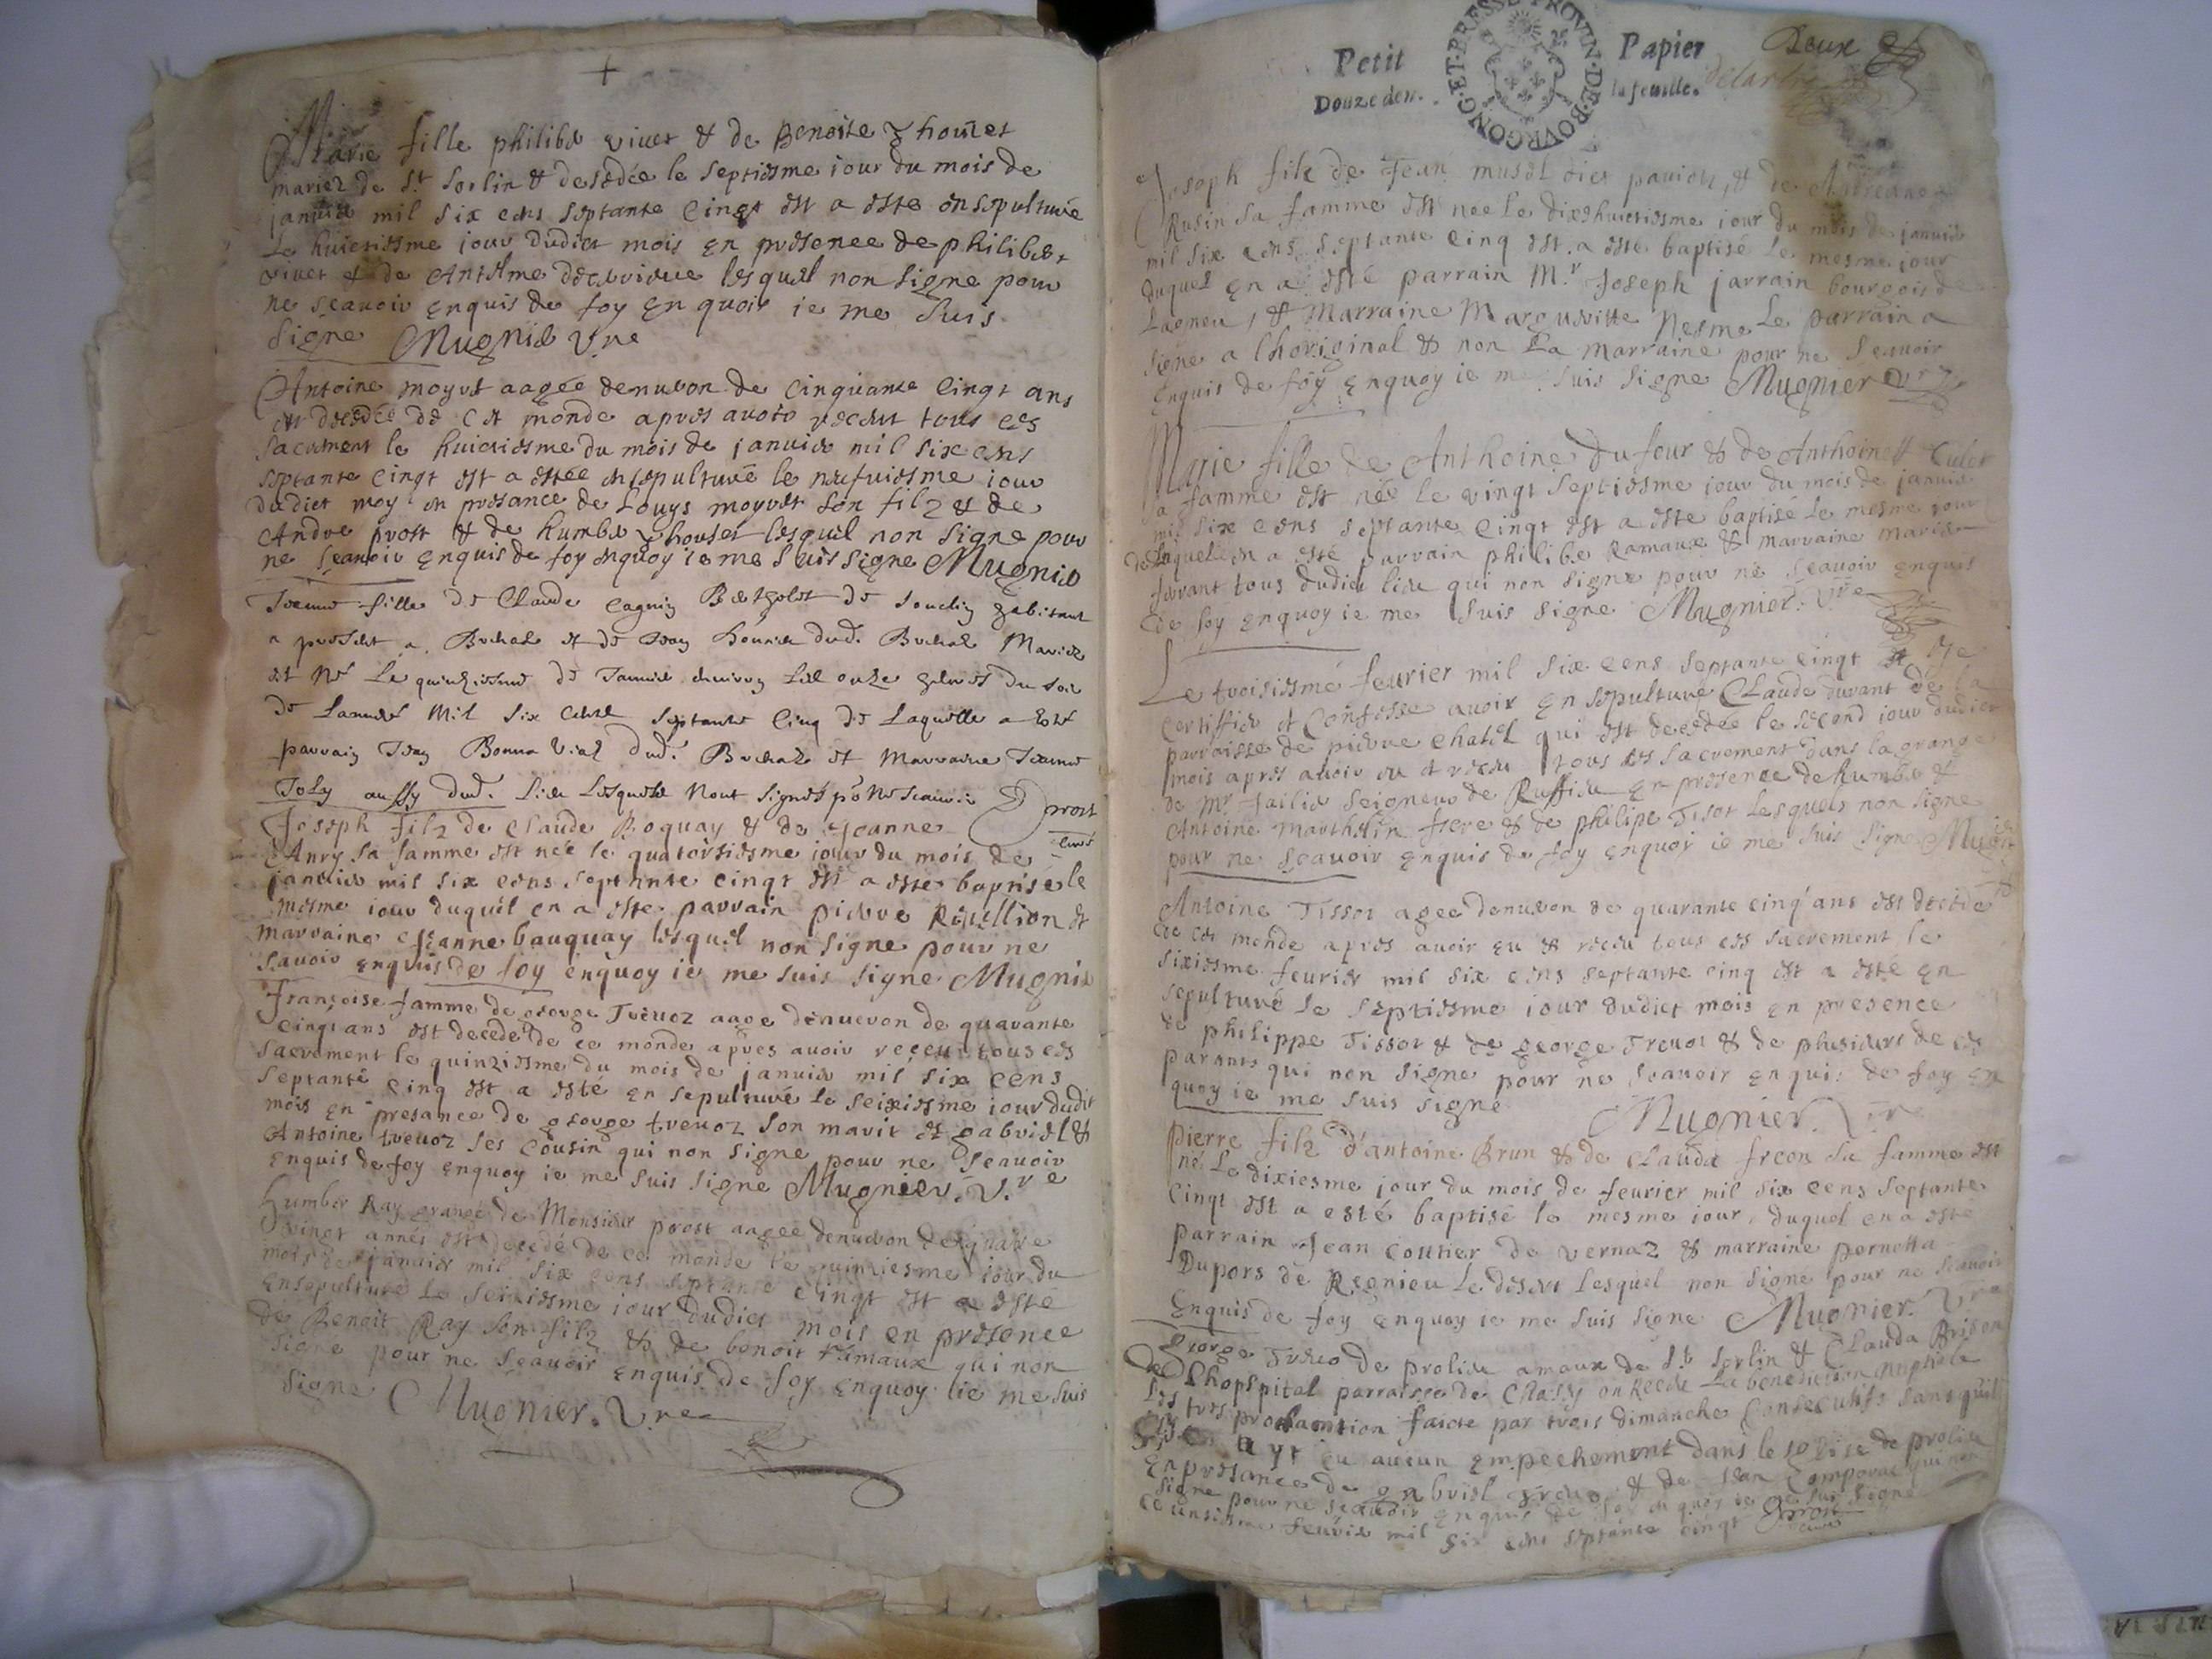 +
Marie fille philiber vivet & de Benoîte Thomet
mariez de St Sorlin & desedée le septiesme iour du mois de
janvier mil six cens septante cinqt est a esté ensepulturée
Le huictiesme iour dudict mois en presence de philibert
vivet & de Antelme lesquel non signe pour
ne scavoir enquis de foy en quoir ie me suis
signe Mugnier vre
Antoine moyret aagée denviron de cinquante cinqt ans
est decedée de cet monde apres avoir receut tous ces
sacrement le huictiesme du mois de janvier mil six cens
septante cinqt est a estée ensepulturé le neufuiesme iour
dudict moy en presance de Louys moyret son filz & de
Andre prost & de humber lesquel non signe pour
ne scavoir enquis de foy enquoy ie me suis signe Mugnier
Jeanne fille de Claude de Souclin habitant
a present a et de dud. Marie
est né Le quinziesme de Janvier environ les onze heures du soir
de Lannee Mil six cents septante cinq de Laquelle a esté
parrain Jean Bonna dud. et Marraine Jeanne
Joly aussy dud. lieu Lesquels nont signés po ne scavoir prost
Joseph filz de Claude Boquay & de Jeanne curé
Anry sa famme est née le quatorsiesme iour du mois de
janvier mil six cens septante cinqt est a esté baptisé le
mesme iour duquel en a esté parrain pierre Revellion &
marraine Jeanne bauquay lesquel non signe pour ne
savoir enquis de foy enquoy ie me suis signe Mugnier
françoise famme de george Trevoz aage denviron de quarante
cinqt ans est decede de ce monde apres avoir receut tous ces
sacrement le quinziesme du mois de janvier mil six cens
septante cinq est a esté en sepulturé le seixiesme iour dudit
mois en presance de george trevoz son marit & gabriel &
Antoine trevoz ses cousin qui non signe pour ne scavoir
enquis de foy enquoy ie me suis signe Mugnier. v.re
humber Ray grangé de Monsieur prost aagée denviron de quatre
vingt annés est decedé de ce monde le quinziesme iour du
mois de janvier mil six cens septante cinqt est a esté
ensepulturé le seixiesme iour dudict mois en presence
de Benoit Ray son filz & de benoit ramaux qui non
signe pour ne scavoir enquis de foy enquoy ie me suis
signe Mugnier. vre
Petit Papier Deux
Douze den. la feuille.
BOURGONG. ET. PRESSE PROVIN. DE. BOVRGONG.
Joseph filz de Jean musel dict pavion, & de Andreane
Rusin sa famme est nee le dixehuictiesme iour du mois de janvier
mil six cens septante cinq est a esté baptisé le mesme iour
duquel en a esté parrain Mr Joseph jarrain bourgois de
Lagneu, & Marraine Marguerite Nesme Le parrain a
signe a lhoriginal & non La marraine pour ne scavoir
enquis de foy enquoy ie me suis signe Mugnier vre
Marie fille de Anthoine Dufour & de Anthoinett Culet
sa famme est née le vingt septiesme iour du mois de janvier
mil six cens septante cinqt est a esté baptisé le mesme iour
de laquelle en a esté parrain philiber Ramaux & marraine marie
favant tous dudict lieu qui non signe pour ne scavoir enquis
de foy enquoy ie me suis signe Mugnier. vre
Le troisiesme feurier mil six cens septante cinqt & ie
certiffie & confesse avoir en sepulturé Claude durant de la
parroisse de pierre chatel qui est decedée le second iour dudict
mois apres avoir eu & receu tous ces sacrement dans la grange
de Mr Jailier seigneur de Ruffieu en presence de humber &
Antoine marthelin frere & de philipe Tisot Lesquels non signe
pour ne scavoir enquis de foy enquoy ie me suis signe Mugnier
Antoine Tissot agee denviron de quarante cinq ans est decede
de ce monde apres avoir eu & receu tous ces sacrement le
sixiesme feurier mil six cens septante cinq est a esté en
sepulturé le septiesme iour dudict mois en presence
de philippe Tissot & de george Trevot & de plusieurs de ces
parants qui non signe pour ne scavoir enquis de foy en
quoy ie me suis signe Mugnier. vre
Pierre filz d'antoine Brun & de Clauda freon sa famme est
né Le dixiesme iour du mois de feurier mil six cens septante
cinqt est a esté baptisé le mesme iour, duquel en a esté
parrain Jean coutier de vernaz & marraine pernetta
Dupors de Regnieu Le desert Lesquel non signe pour ne scavoir
enquis de foy enquoy ie me suis signe Mugnier. vre
George Trevo de prolieu amaux de St Sorlin & Clauda Brison
de Lhopspital parraisse de Chassy on Receu La benediction nuptiale
les tres proclamtion faicte par trois dimanche consecutifs sans quil
ayt eu aucun empechement dans le glise de prolieu
enpresance de gabriel trevo & de Jean qui non
signe pour ne scavoir enquis de foy en quoy ie me suis signe
ce unsiesme feurier mil six cens septante cinqt prost
curé